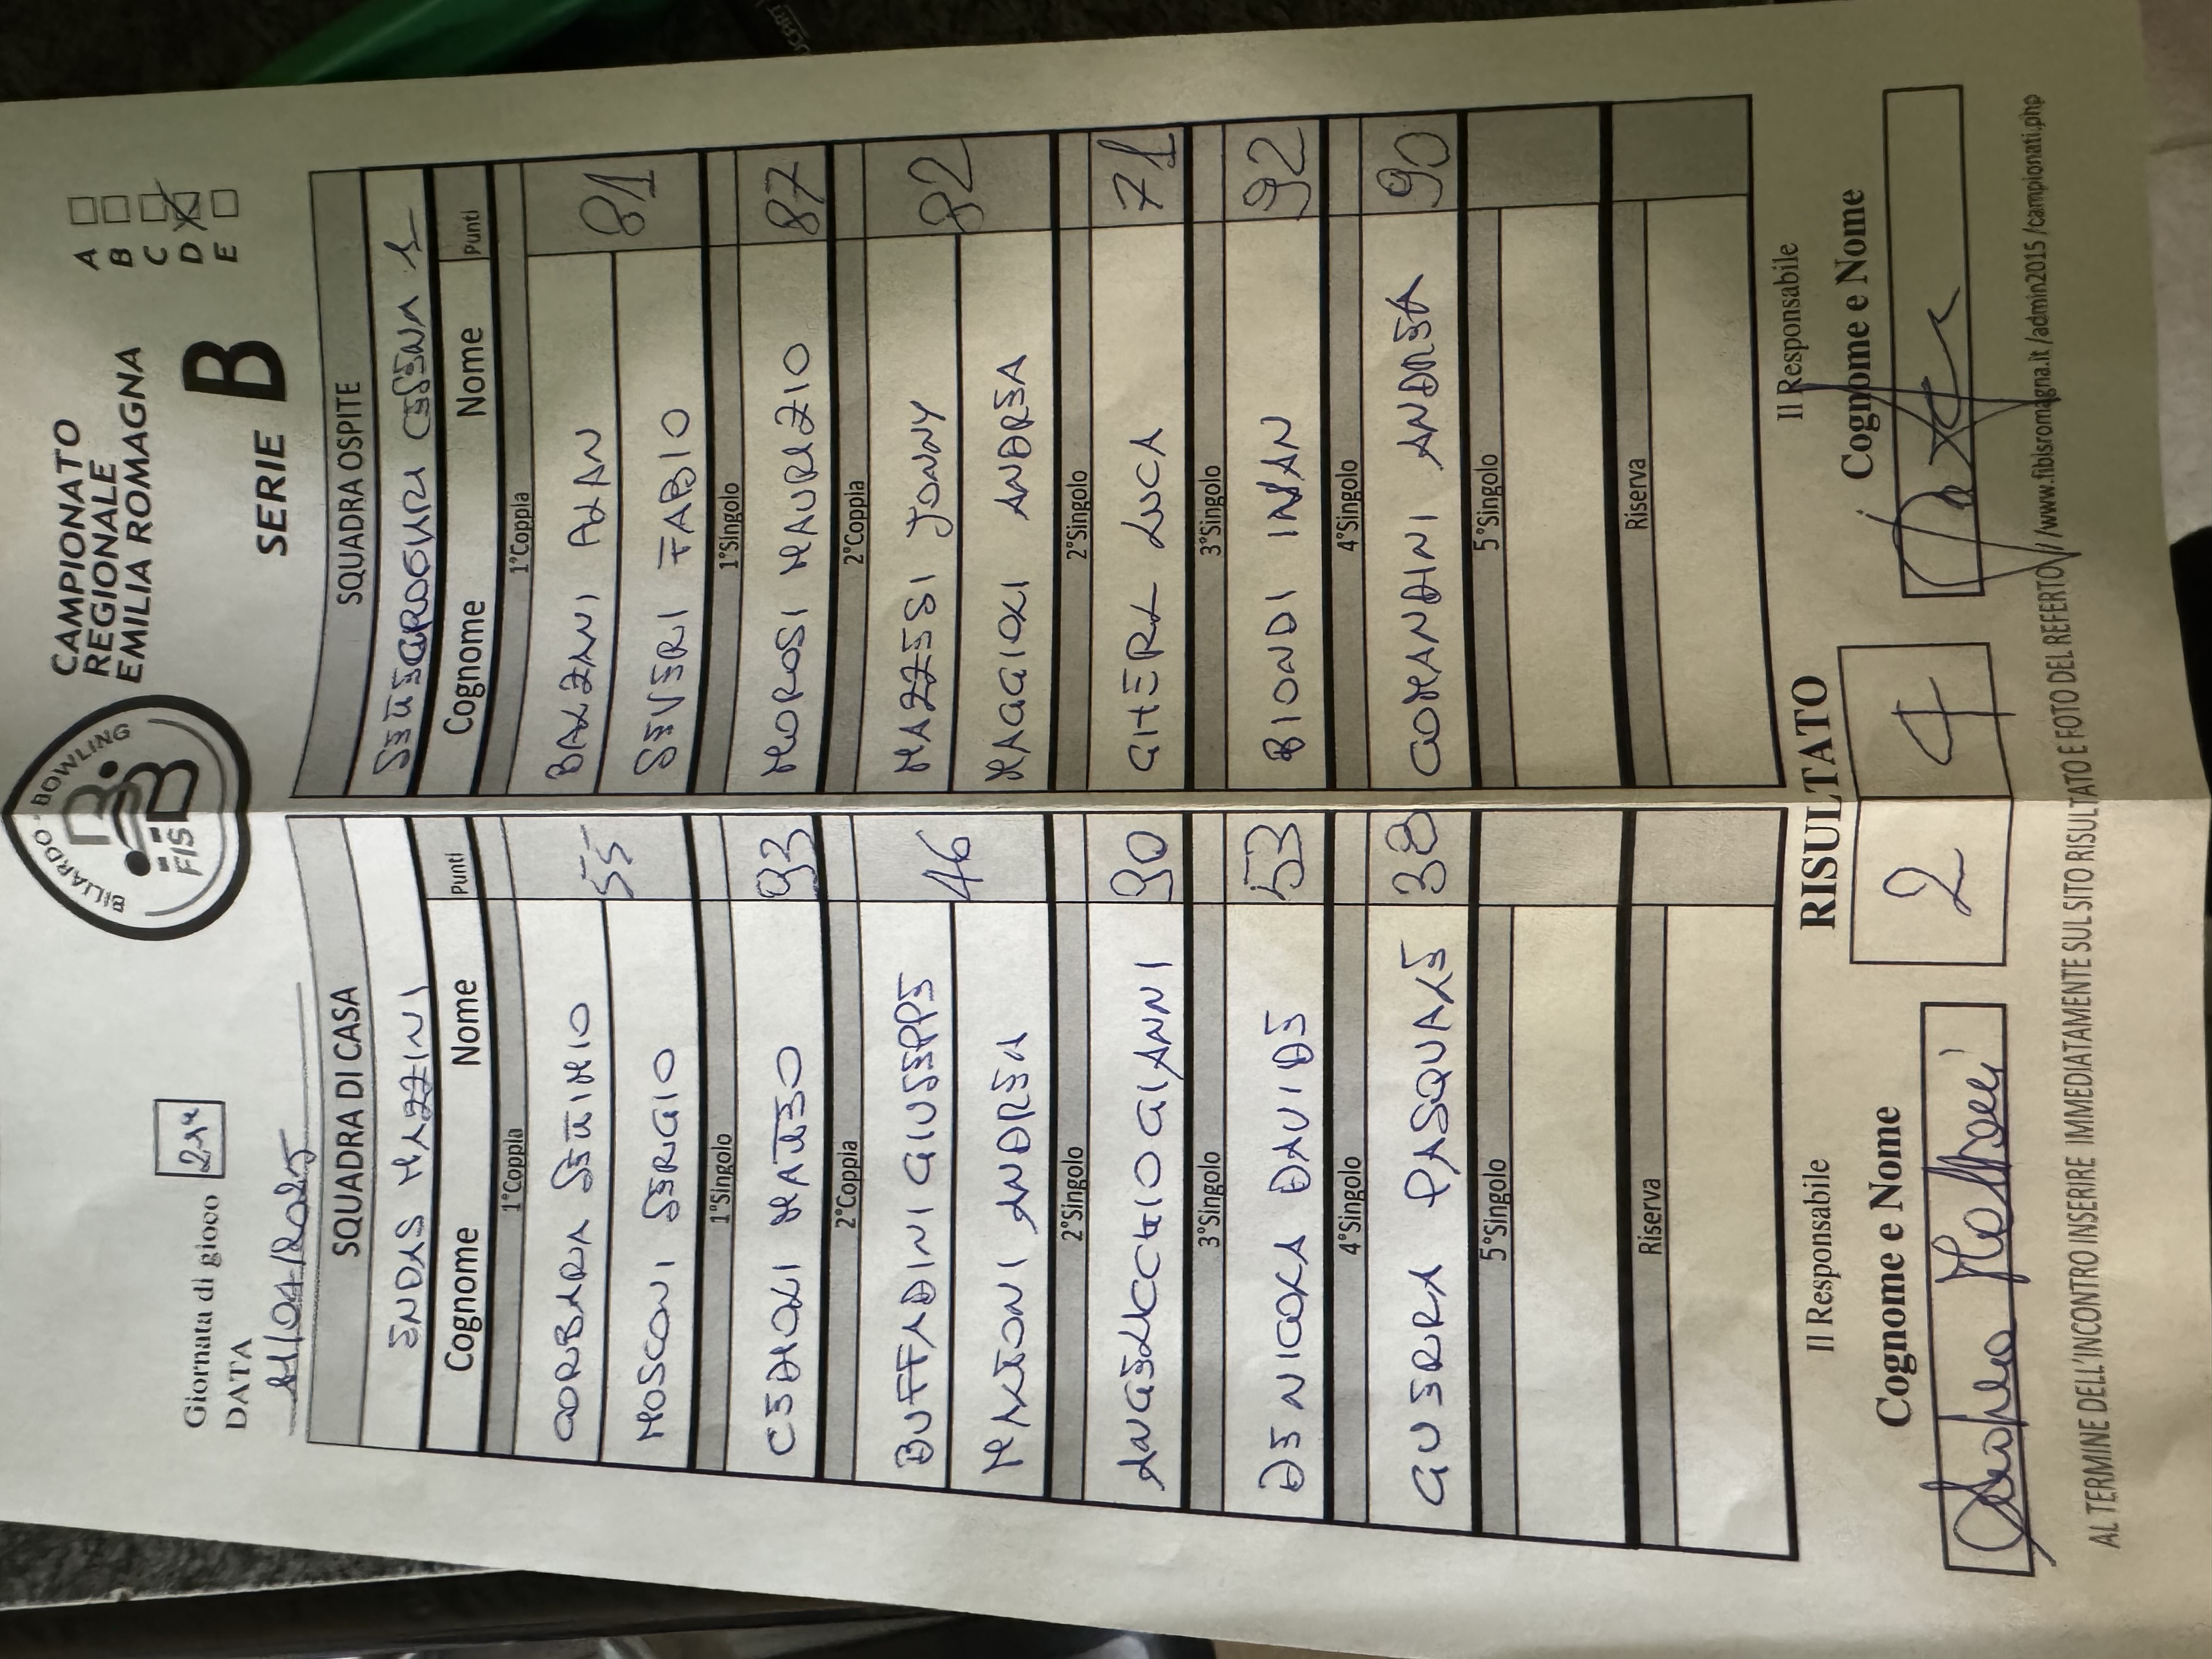 BILIARDO - BOWLING
FISBB
CAMPIONATO
REGIONALE
EMILIA ROMAGNA
SERIE B
A
B
C
D
E
Giornata di gioco 21ª
DATA
11/04/2025
SQUADRA DI CASA SQUADRA OSPITE
ENDAS MAZZINI SETTECROCIARI CESENA 1
Cognome Nome Punti Cognome Nome Punti
1°Coppia 1°Coppia
CORBARA SETTIMIO 55 BALZANI ALAN 81
MOSCONI SERGIO SEVERI FABIO
1°Singolo 1°Singolo
CEDIOLI MATTEO 93 MOROSI MAURIZIO 87
2°Coppia 2°Coppia
BUFFADINI GIUSEPPE 46 MAZZESI JONNY 82
MANTONI ANDREA MAGGIOLI ANDREA
2°Singolo 2°Singolo
ANGELUCCHIO GIANNI 90 GHERL LUCA 71
3°Singolo 3°Singolo
DE NICOLA DAVIDE 53 BIONDI IVAN 92
4°Singolo 4°Singolo
GUERRA PASQUALE 38 COMANDINI ANDREA 90
5°Singolo 5°Singolo
Riserva Riserva
Il Responsabile RISULTATO Il Responsabile
Cognome e Nome 2 4 Cognome e Nome
AL TERMINE DELL'INCONTRO INSERIRE IMMEDIATAMENTE SUL SITO RISULTATO E FOTO DEL REFERTO //www.fibisromagna.it /admin2015 /campionati.php